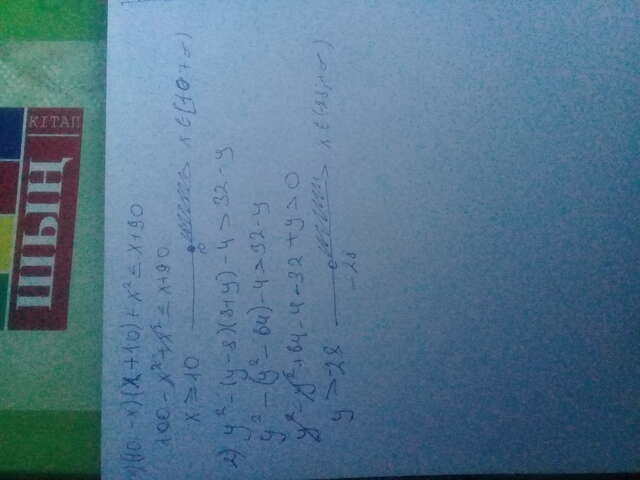 КІТАП
ШЫҢ
1)(10-x)(x+10)+x²≤x+90
100-x²+x²≤x+90
x≥10 10 x∈[10;+∞)
2) y²-(y-8)(8+y)-4>32-y
y²-(y²-64)-4>32-y
y²-y²+64-4-32+y>0
y>-28 -28 x∈(-28;+∞)